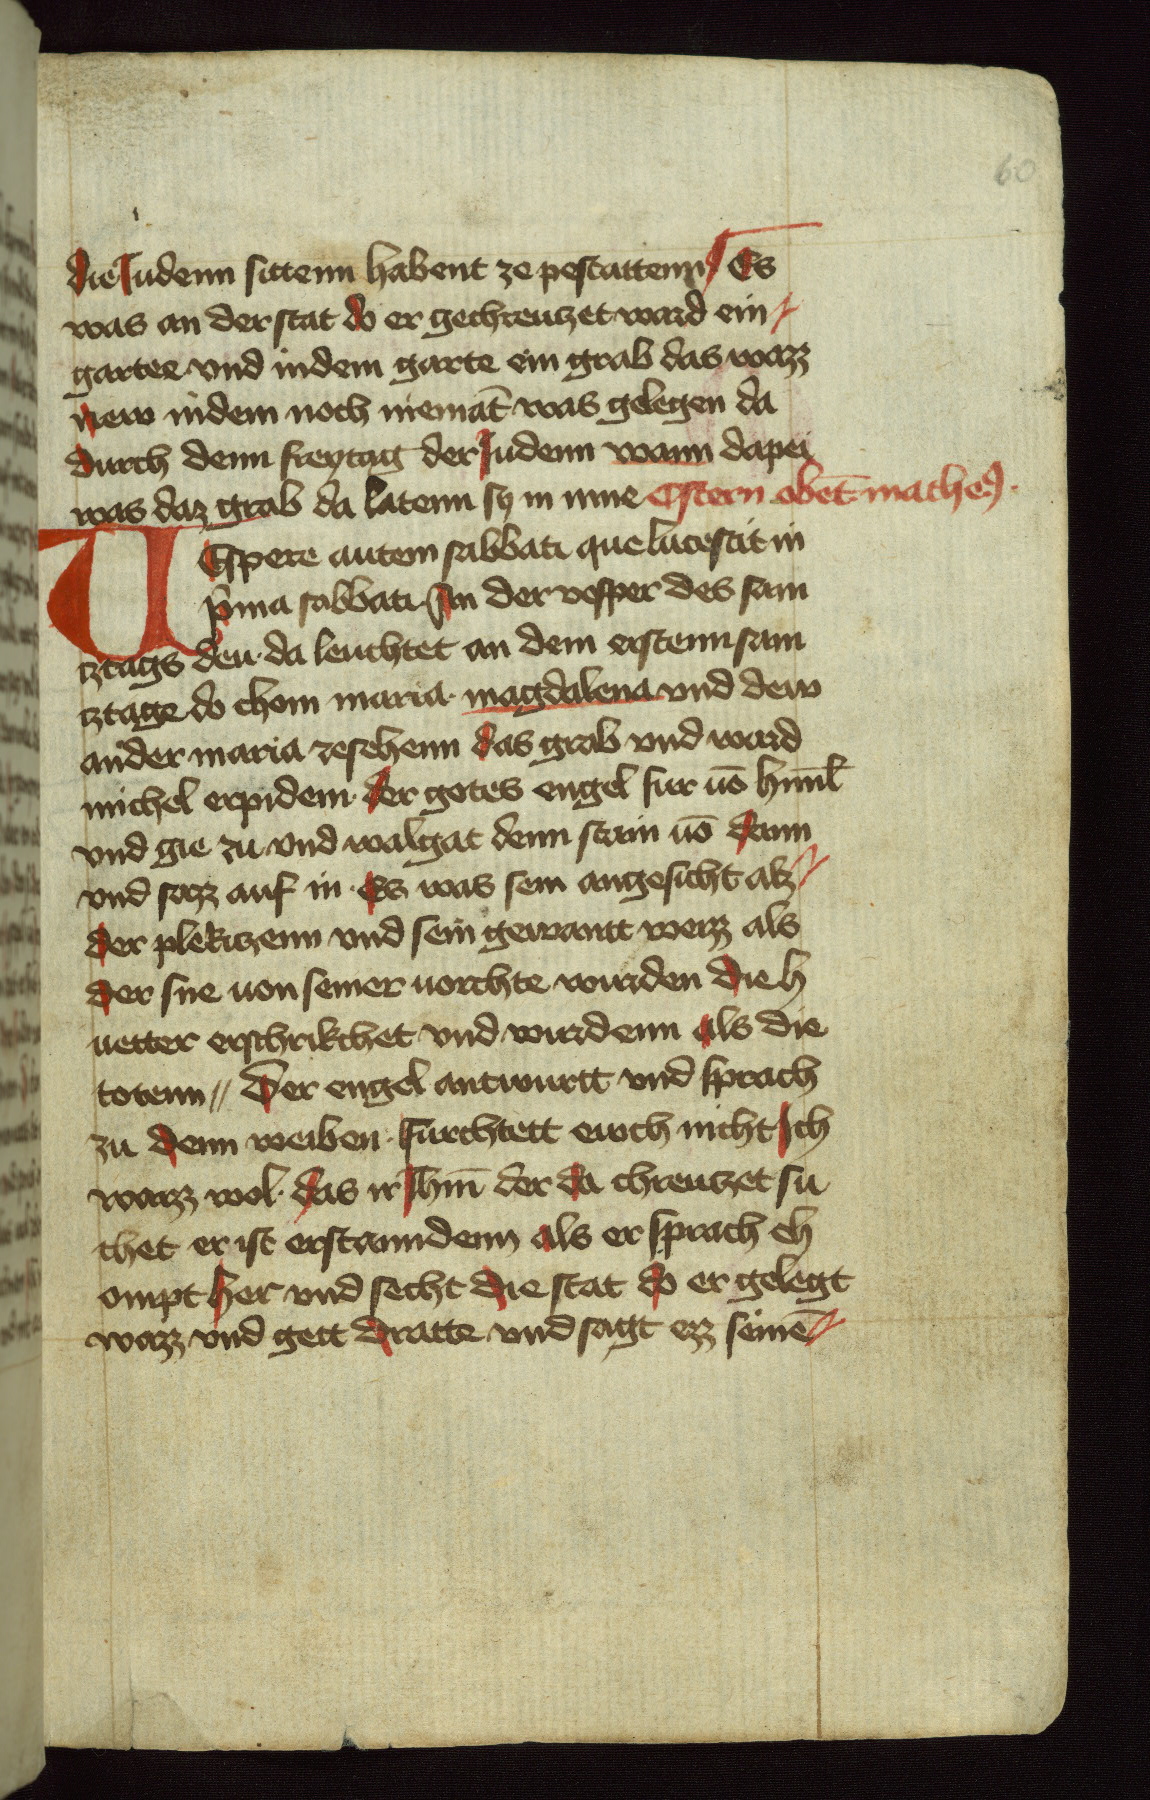 60
die Judenn sittenn habent ze pestattenn Es
was an der stat do er gechreutzet ward ein
gartee vnd in dem garte ein grab das wazz
new in dem noch niemāt was gelegen da
durch denn freytag der Judenn wann dapei
was daz grab da latenn sy in inne Estern obēt matheꝯ.
VEspere autem sabbati que lucescit in
pma sabbati. An der vesper des sam
tztags deu. da leuchtet an dem erstenn sam
tztage do chom maria. magdalena vnd dew
ander maria ze sehenn das grab vnd ward
michel erpidem. der gotes engel fur uō himl
vnd gie zu vnd walgat denn stain uō dann
vnd sazz auf in. Es was sein angesicht alz
der plekizenn vnd sein gewantt weizz als
der sne uon seiner uorchte wurden die h
uetter erschrikchet vnd wurdenn als die
totenn // Der engel antwurtt vnd sprach
zu denn weiben. Furchtett ewch nicht Ich
waizz wol. das ir Ihm̄ der da chreutzet su
chet er ist erstanndenn als er sprach ch
ompt her vnd secht die stat do er gelegt
wazz vnd gett dratte vnd sagt ezz seinē